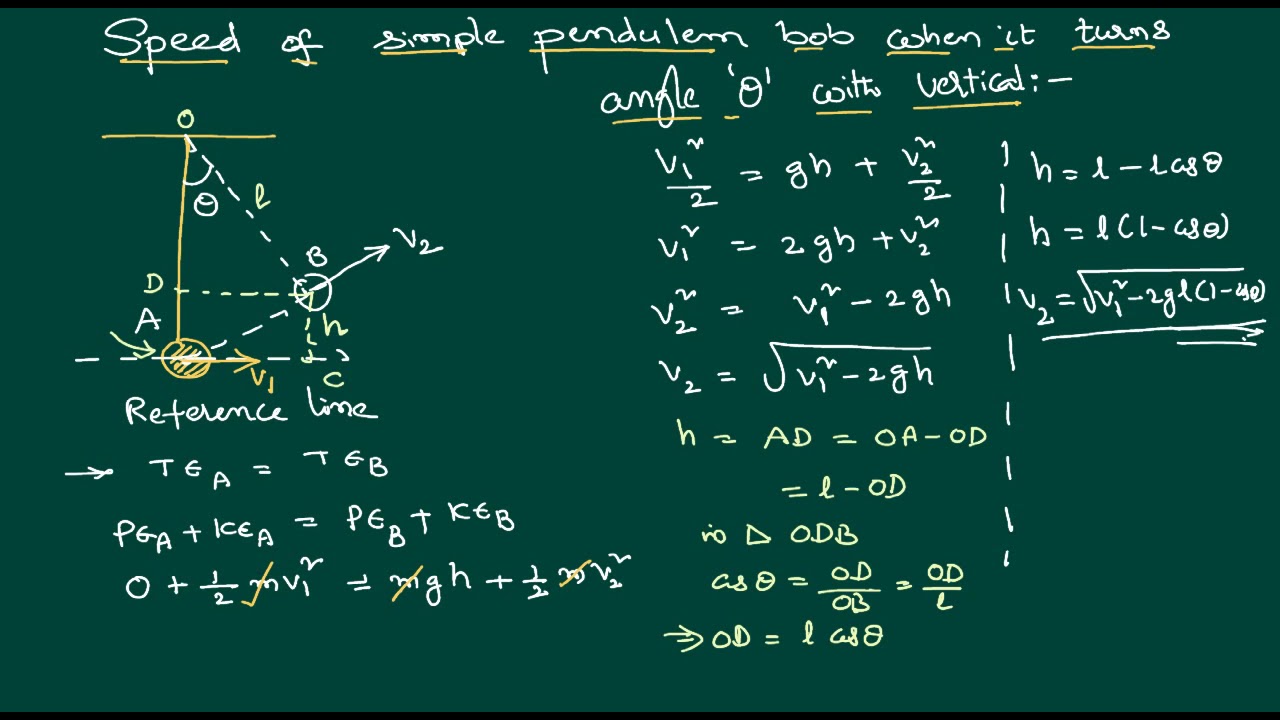 Speed of simple pendulem bob when it turns
angle 'θ' with vertical:-
O
θ
l
B
V₂
D
A
h
V₁
C
Reference line
→ TE_A = TE_B
PE_A + KE_A = PE_B + KE_B
0 + 1/2 mv₁² = mgh + 1/2 mv₂²
V₁²/2 = gh + V₂²/2
V₁² = 2gh + V₂²
V₂² = V₁² - 2gh
V₂ = √(V₁² - 2gh)
h = AD = OA - OD
= l - OD
in △ ODB
cosθ = OD/OB = OD/l
⇒ OD = l cosθ
h = l - l cosθ
h = l(1 - cosθ)
V₂ = √(V₁² - 2gl(1 - cosθ))